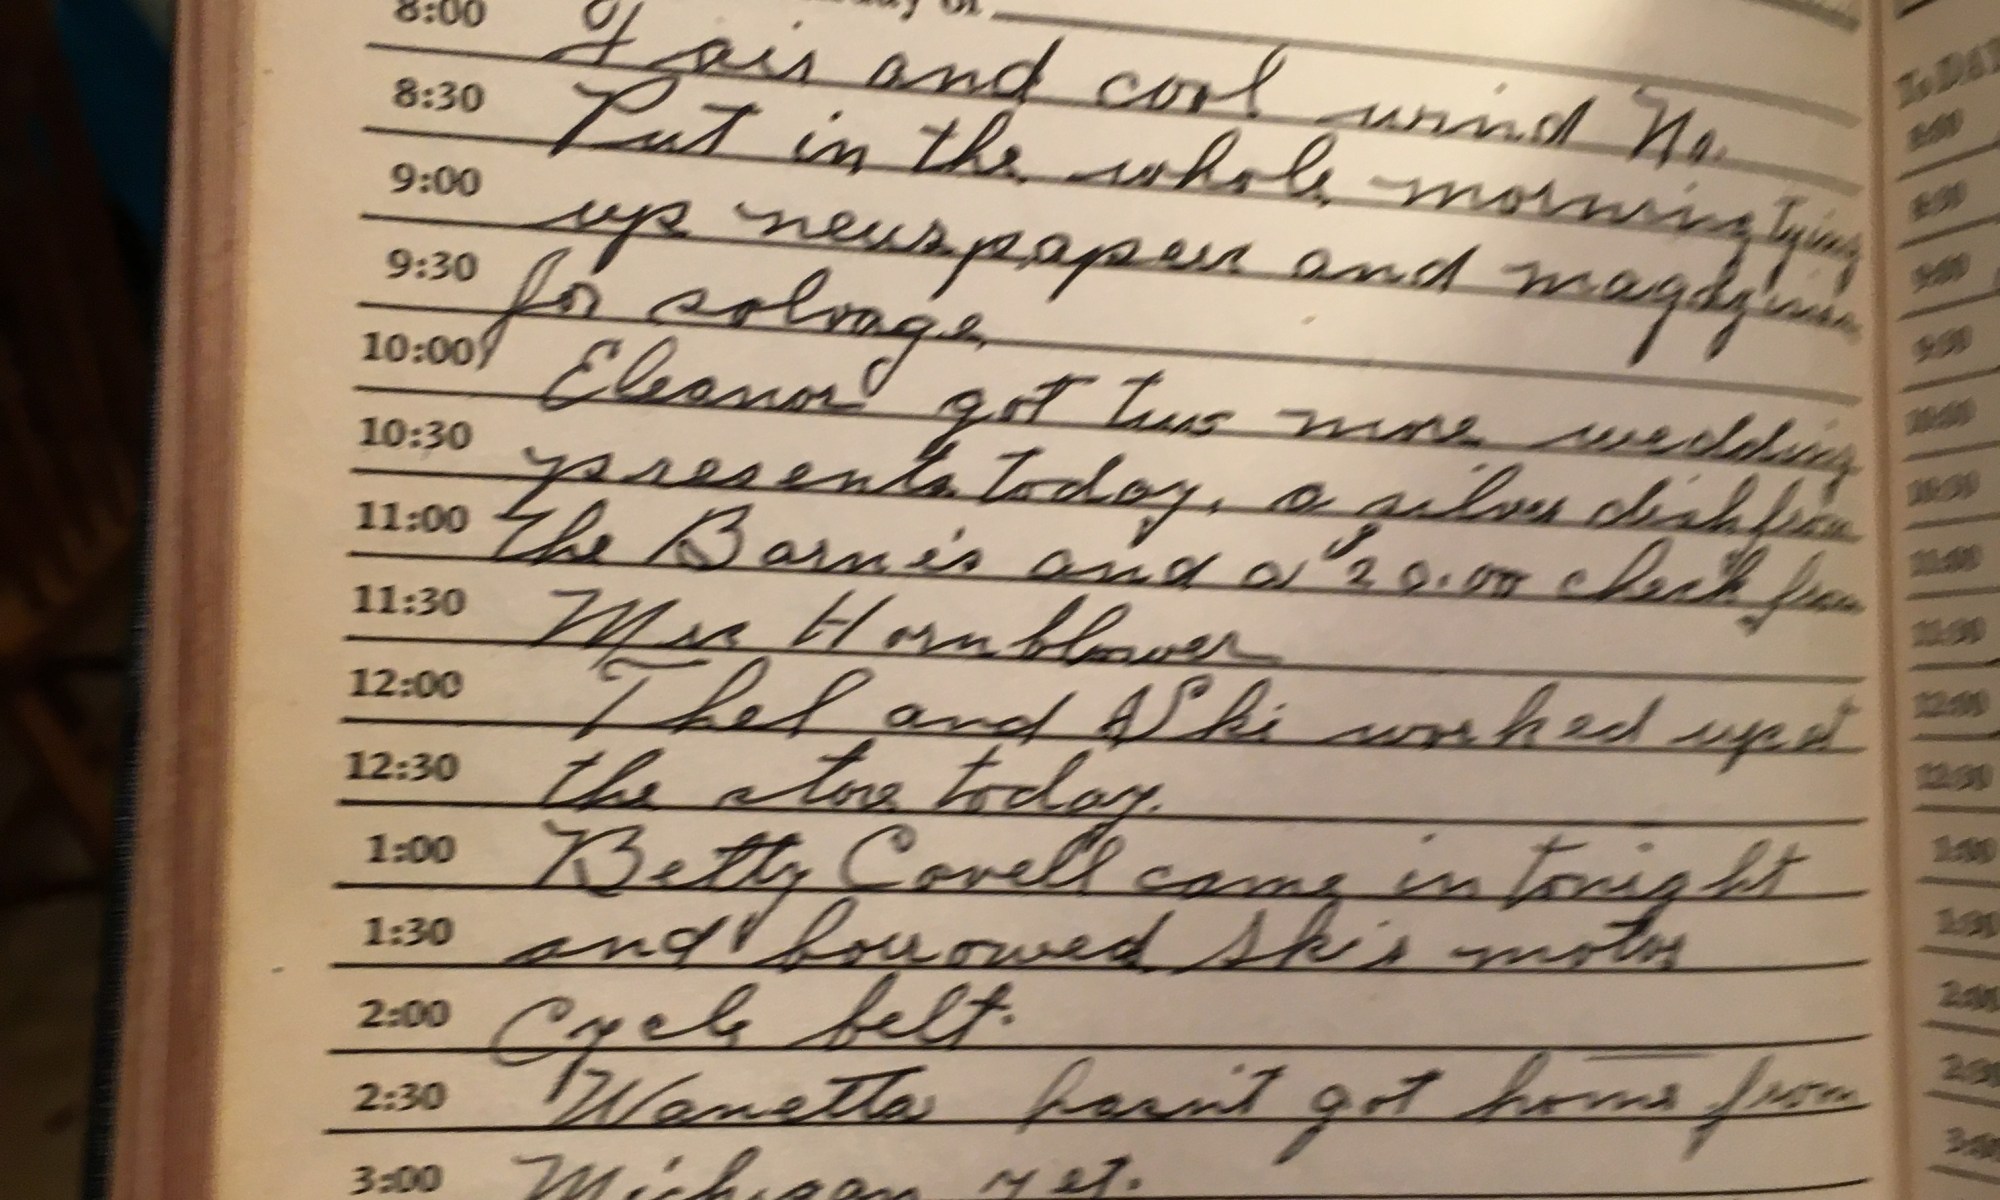 day of
8:00 Fair and cool wind No.
8:30 Put in the whole morning tying
9:00 up newspapers and magazines
9:30 for salvage
10:00 Eleanor got two more wedding
10:30 presents today, a silver dish from
11:00 the Barnes and a $20.00 check from
11:30 Mrs Hornblower
12:00 Thel and Ski worked up at
12:30 the store today.
1:00 Betty Covell came in tonight
1:30 and borrowed Ski's motor
2:00 Cycle belt.
2:30 Wanetta hasn't got home from
3:00 Michigan yet.
8:00
8:30
9:00
9:30
10:00
10:30
11:00
11:30
12:00
12:30
1:00
1:30
2:00
2:30
3:00